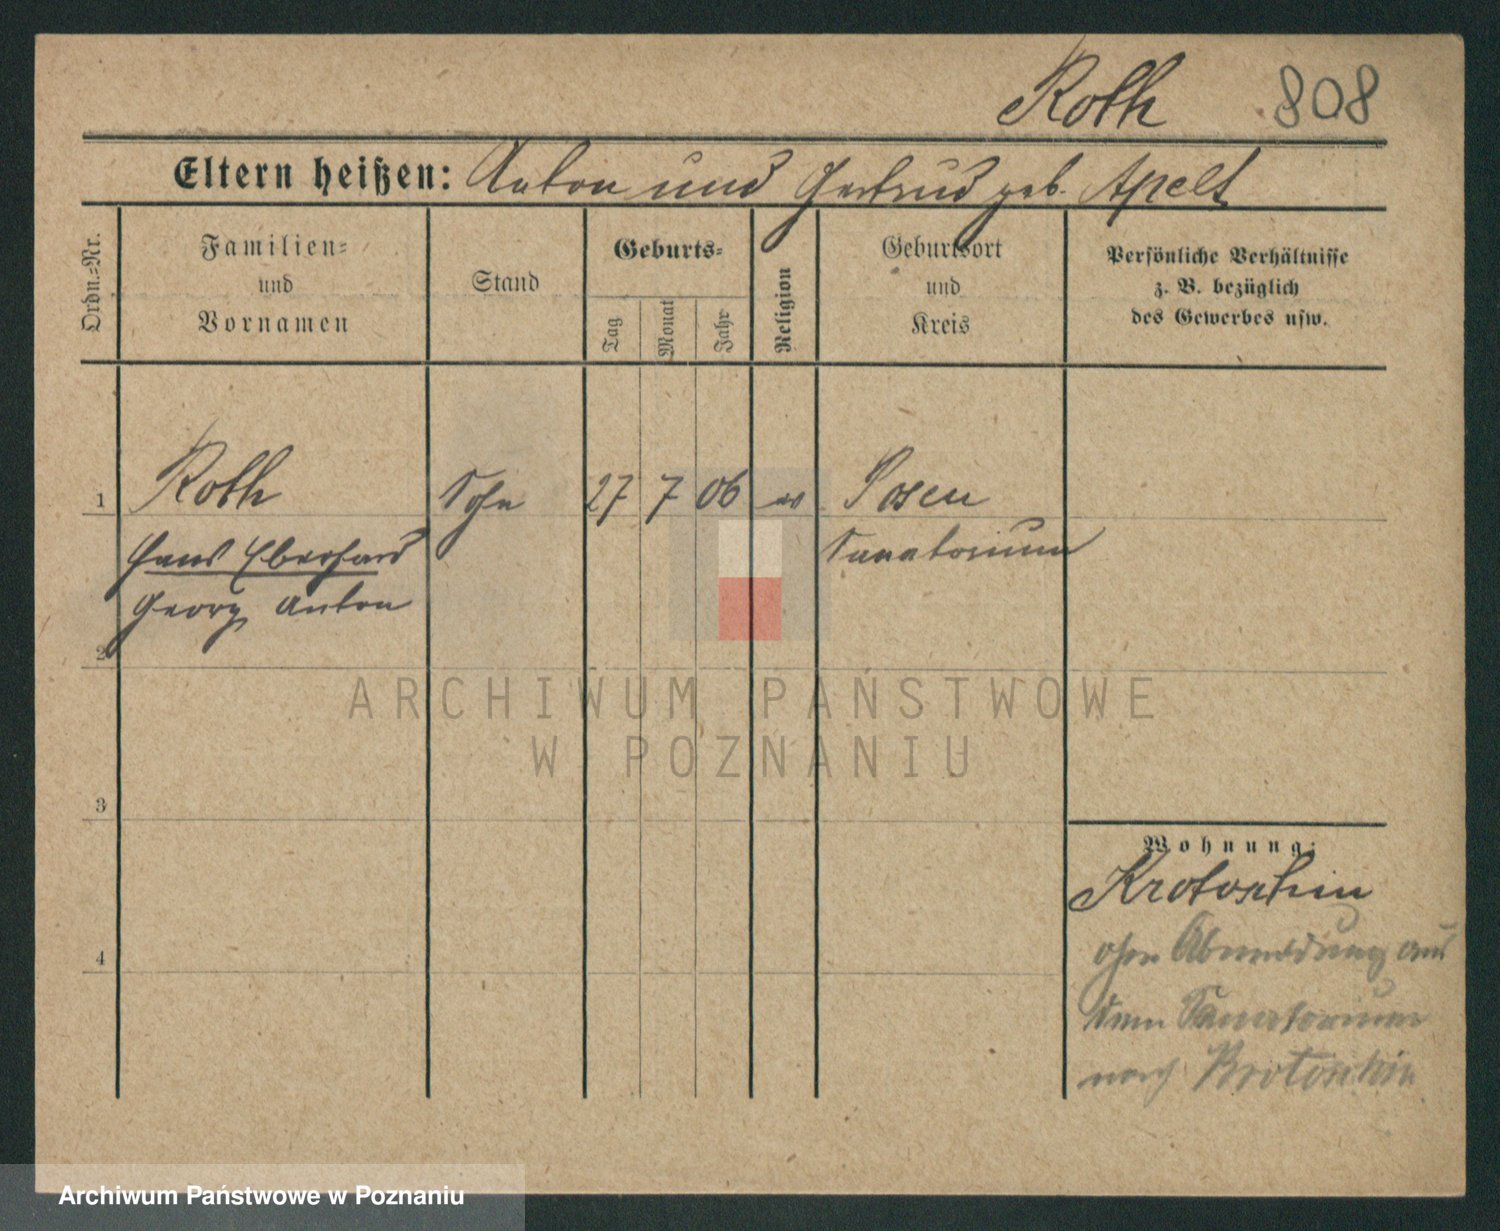 Roth 808
Eltern heißen: Anton und Gertrud geb. Apelt
Ordn.=Nr.
Familien=
und
Vornamen
Stand
Geburts=
Tag
Monat
Jahr
Religion
Geburtsort
und
Kreis
Persönliche Verhältnisse
z. B. bezüglich
des Gewerbes usw.
1 Roth Sohn 27 7 06 ev Posen
Hans Eberhard Sanatorium
Georg Anton
2
ARCHIWUM PAŃSTWOWE
W POZNANIU
3
Wohnung:
Krotoschin
ohne Abmeldung aus
4
dem Sanatorium
nach Krotoschin
Archiwum Państwowe w Poznaniu